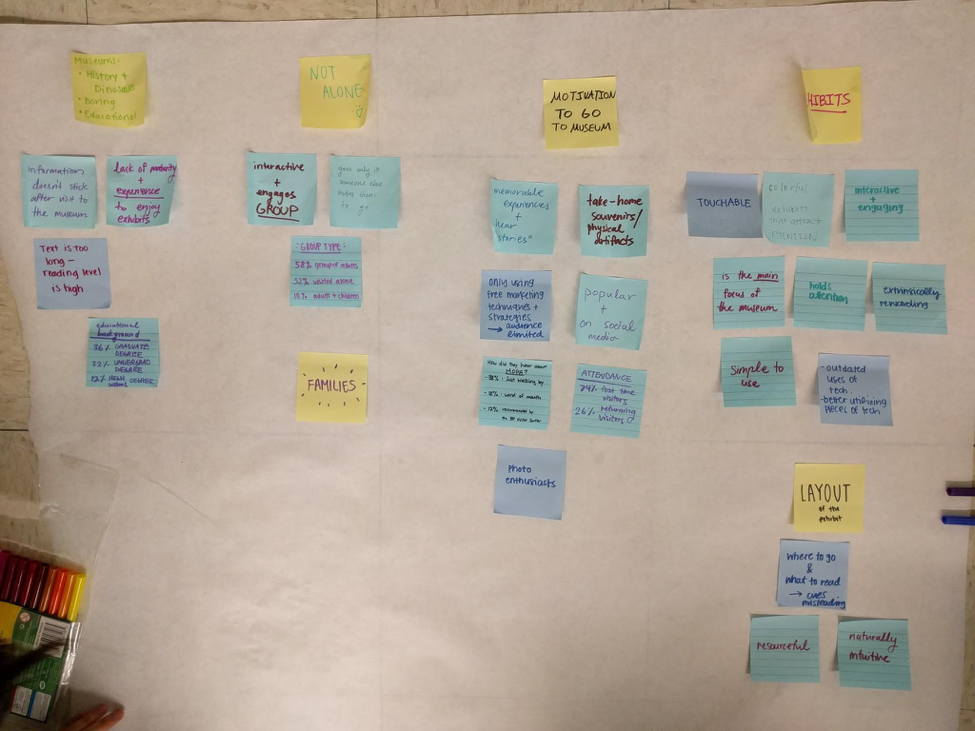 Museums:
• History +
Dinosaurs
• Boring
• Educational
information
doesn't stick
after visit to
the museum
lack of maturity
+
experience
to enjoy
exhibits
Text is too
long -
reading level
is high
educational
background
36% GRADUATE
DEGREE
32% UNDERGRAD
DEGREE
12%
NOT
ALONE
interactive
+
engages
GROUP
goes only if
someone else
wants them
to go
GROUP TYPE:
58% group of adults
32% visited alone
10% adults + children
FAMILIES
MOTIVATION
TO GO
TO MUSEUM
memorable
experiences
+
hear
stories"
take-home
souvenirs/
physical
artifacts
only using
free marketing
techniques +
strategies
→ audience
limited
popular
+
on social
media
How did they hear about
MOPA?
Just walking by
word of mouth
recommended by
the
ATTENDANCE
74% first time
visitors
26% returning
visitors
Photo
enthusiasts
HIBITS
TOUCHABLE
colorful
exhibits
that attract
ATTENTION
interactive
+
engaging
is the main
focus of
the museum
holds
attention
extrinsically
rewarding
Simple to
use
- outdated
uses of
tech.
- better utilizing
pieces of tech
LAYOUT
of the
exhibit
where to go
&
what to read
→ cues
misleading
resourceful
naturally
intuitive